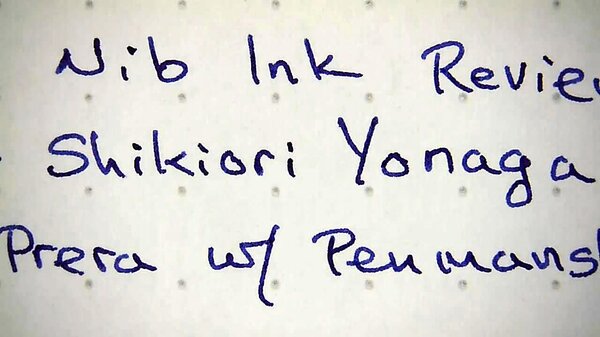 Nib Ink Revie
Shikiori Yonaga
Prera w/ Penmans